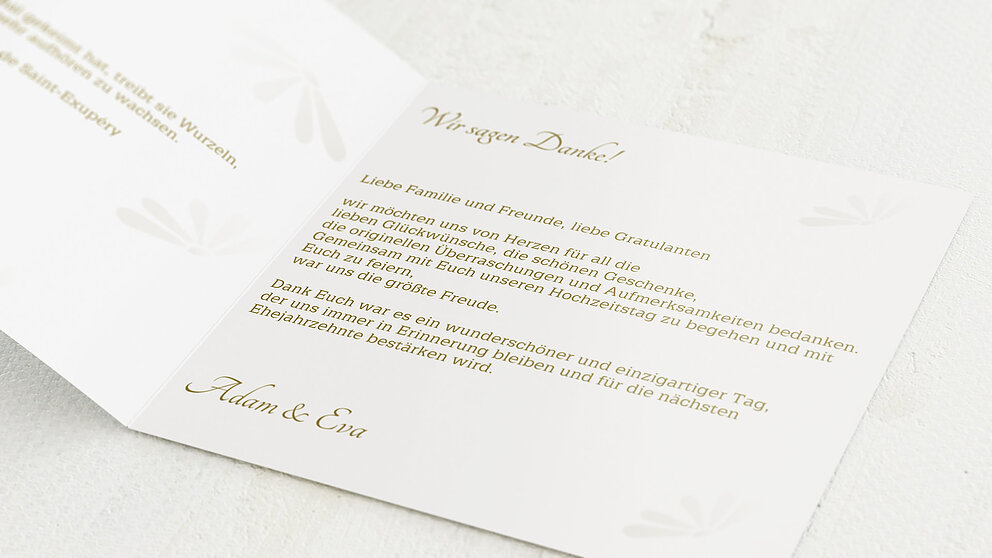 hat, treibt sie Wurzeln,
aufhören zu wachsen.
de Saint-Exupéry
Wir sagen Danke!
Liebe Familie und Freunde, liebe Gratulanten
wir möchten uns von Herzen für all die
lieben Glückwünsche, die schönen Geschenke,
die originellen Überraschungen und Aufmerksamkeiten bedanken.
Gemeinsam mit Euch unseren Hochzeitstag zu begehen und mit
Euch zu feiern,
war uns die größte Freude.
Dank Euch war es ein wunderschöner und einzigartiger Tag,
der uns immer in Erinnerung bleiben und für die nächsten
Ehejahrzehnte bestärken wird.
Adam & Eva